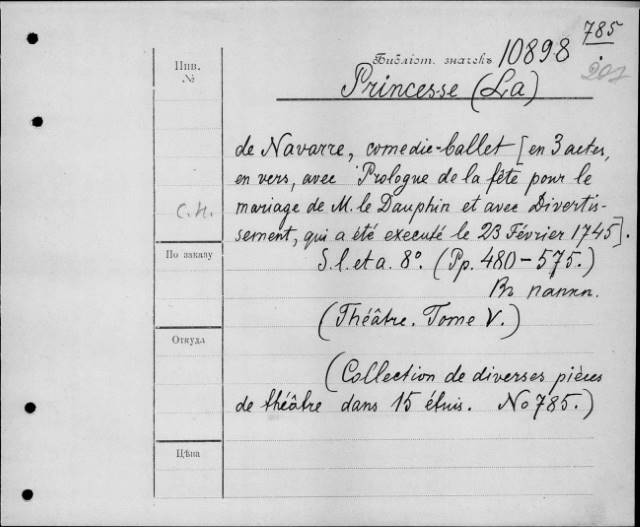 785
Библіот. значекъ 10898
201
Инв.
№
Princesse (La)
de Navarre, comedie-ballet [en 3 actes,
en vers, avec Prologue de la fête pour le
C.H.
mariage de M. le Dauphin et avec Divertis-
sement, qui a été executé le 23 Février 1745].
По заказу
S. l. et a. 8°. (Pp. 480-575.)
Въ папкѣ.
(Théâtre. Tome V.)
Откуда
(Collection de diverses pièces
de théâtre dans 15 étuis. No 785.)
Цѣна